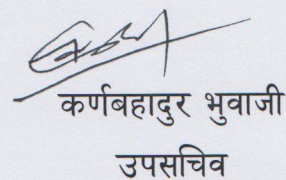 कर्णबहादुर भुवाजी
उपसचिव